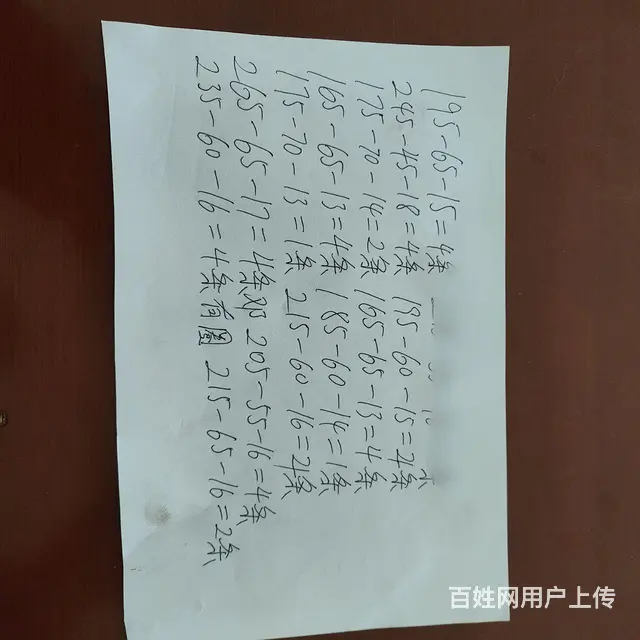 195-65-15=4条
245-45-18=4条 195-60-15=2条
175-70-14=2条 165-65-13=4条
165-65-13=4条 185-60-14=1条
175-70-13=1条 215-60-16=2条
265-65-17=4条邓 205-55-16=4条
235-60-16=4条有圈 215-65-16=2条
百姓网用户上传